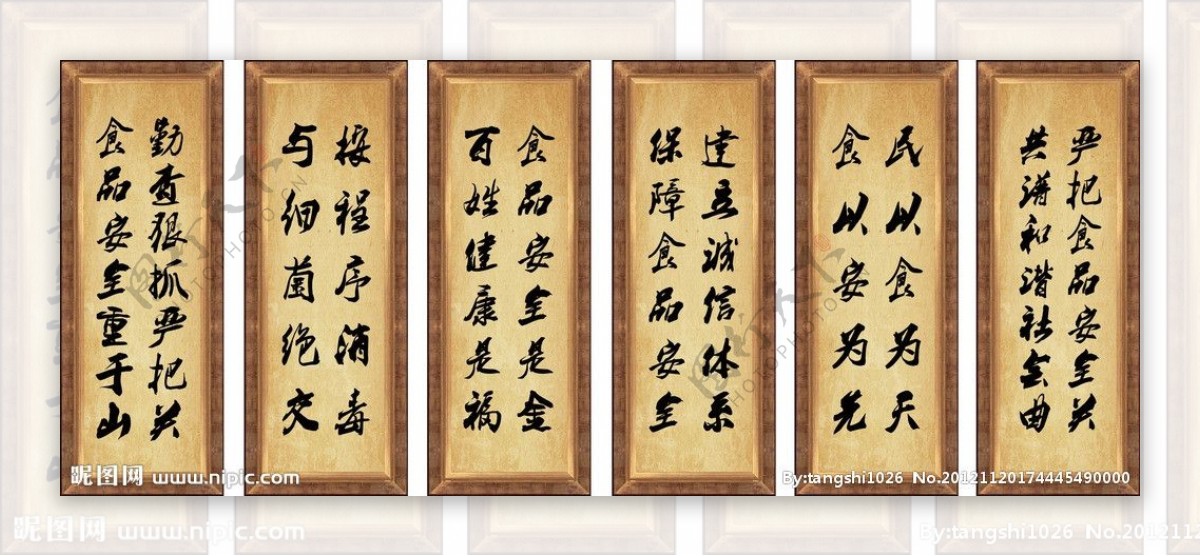 严把食品安全关
共谱和谐社会曲
民以食为天
食以安为先
建立诚信体系
保障食品安全
食品安全是金
百姓健康是福
按程序消毒
与细菌绝交
勤查狠抓严把关
食品安全重于山
昵图网 www.nipic.com
By:tangshi1026 No.20121120174445490000
昵图网 www.nipic.com
By:tangshi1026 No.201211